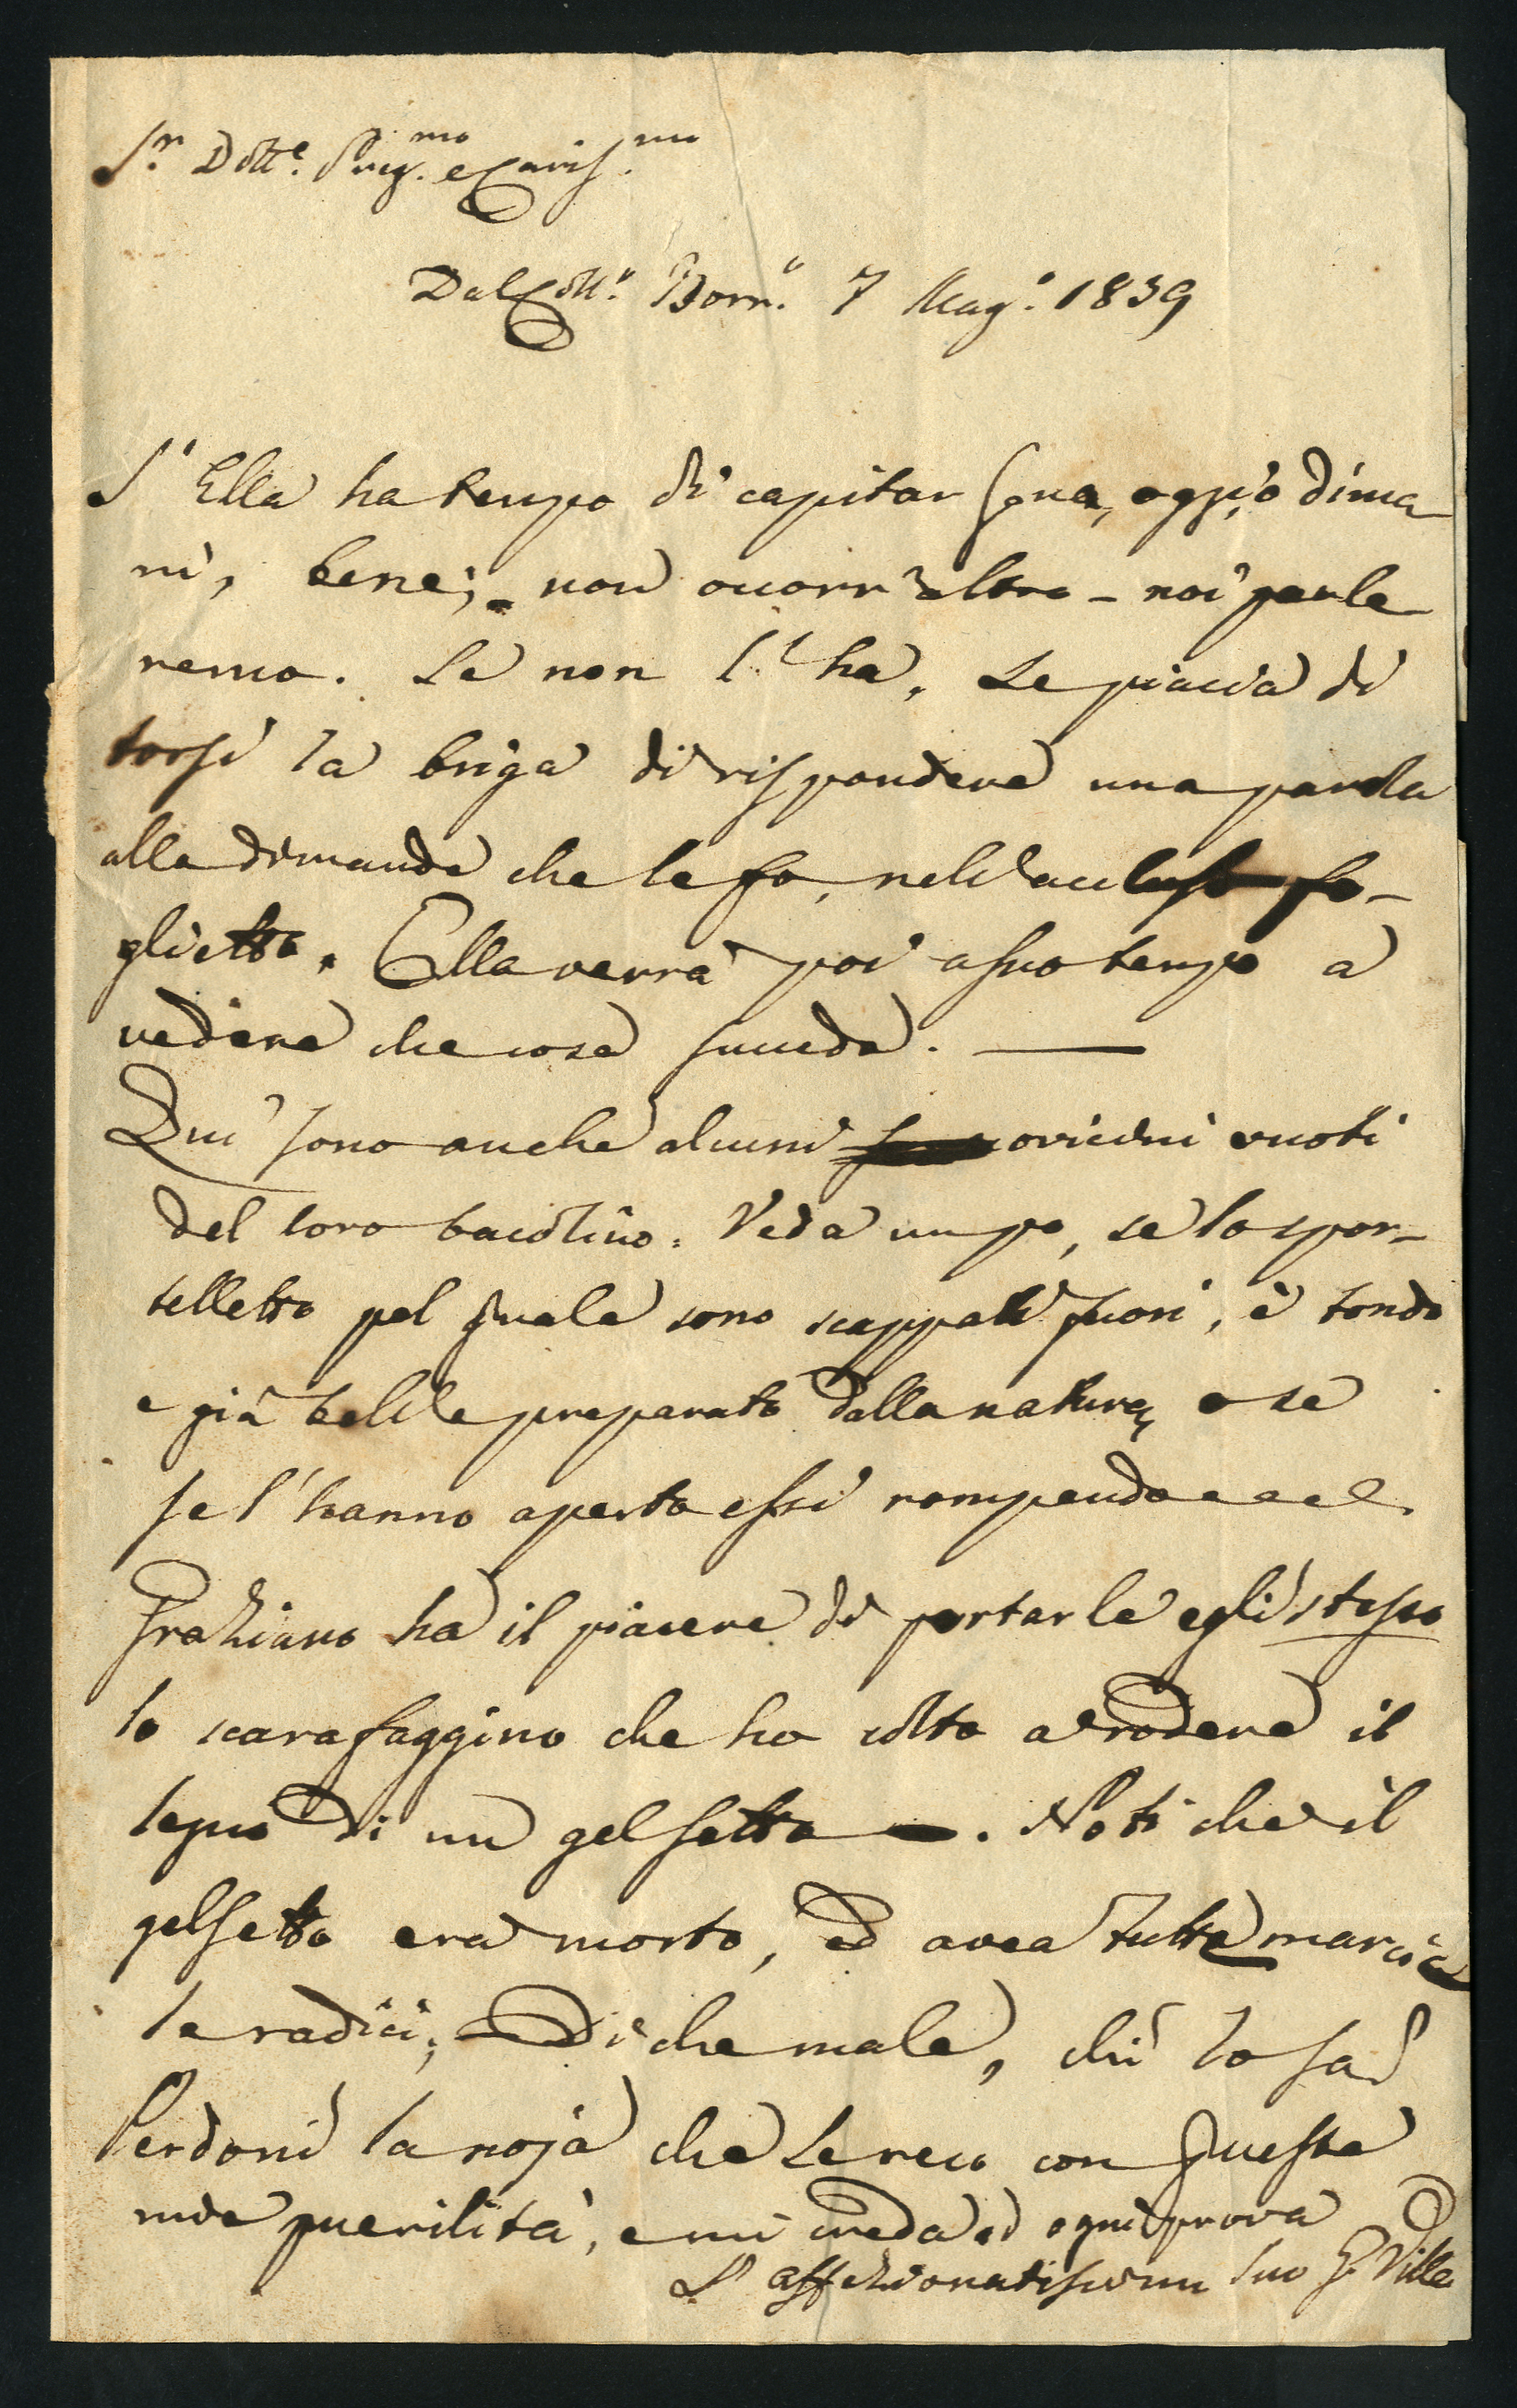 S.r Dott.e Preg.mo e Cariss.mo
Dal Coll.o Borr.o 7 Mag.o 1839
S' Ella ha tempo di capitar quà, oggi, o dima
ni, bene; non occorr' altro - noi parle
remo. Se non l' ha, Le piaccia di
torsi la briga di rispondere una parola
alla dimanda che le fo, nell' accluso fo-
glietto. Ella verrà poi a suo tempo a
vedere che cosa succeda. —
Qui sono anche alcuni ovicini vuoti
del loro bacolino. Veda un po, se lo spor-
telletto pel quale sono scappati fuori, è tondo
e già bell' e preparato dalla natura, o se
se l' hanno aperto essi rompendo e e e.
Graziano ha il piacere di portarle egli stesso
lo scarafaggino che ha colto a rodere il
legno di un gelsetto. Noti che il
gelsetto era morto, ed avea tutte marcie
le radici; Di che male, chi lo sa?
Perdoni la noja che Le reco con queste
mie puerilità, e mi creda ad ogni prova
L' affezionatissimo Suo G. Villa